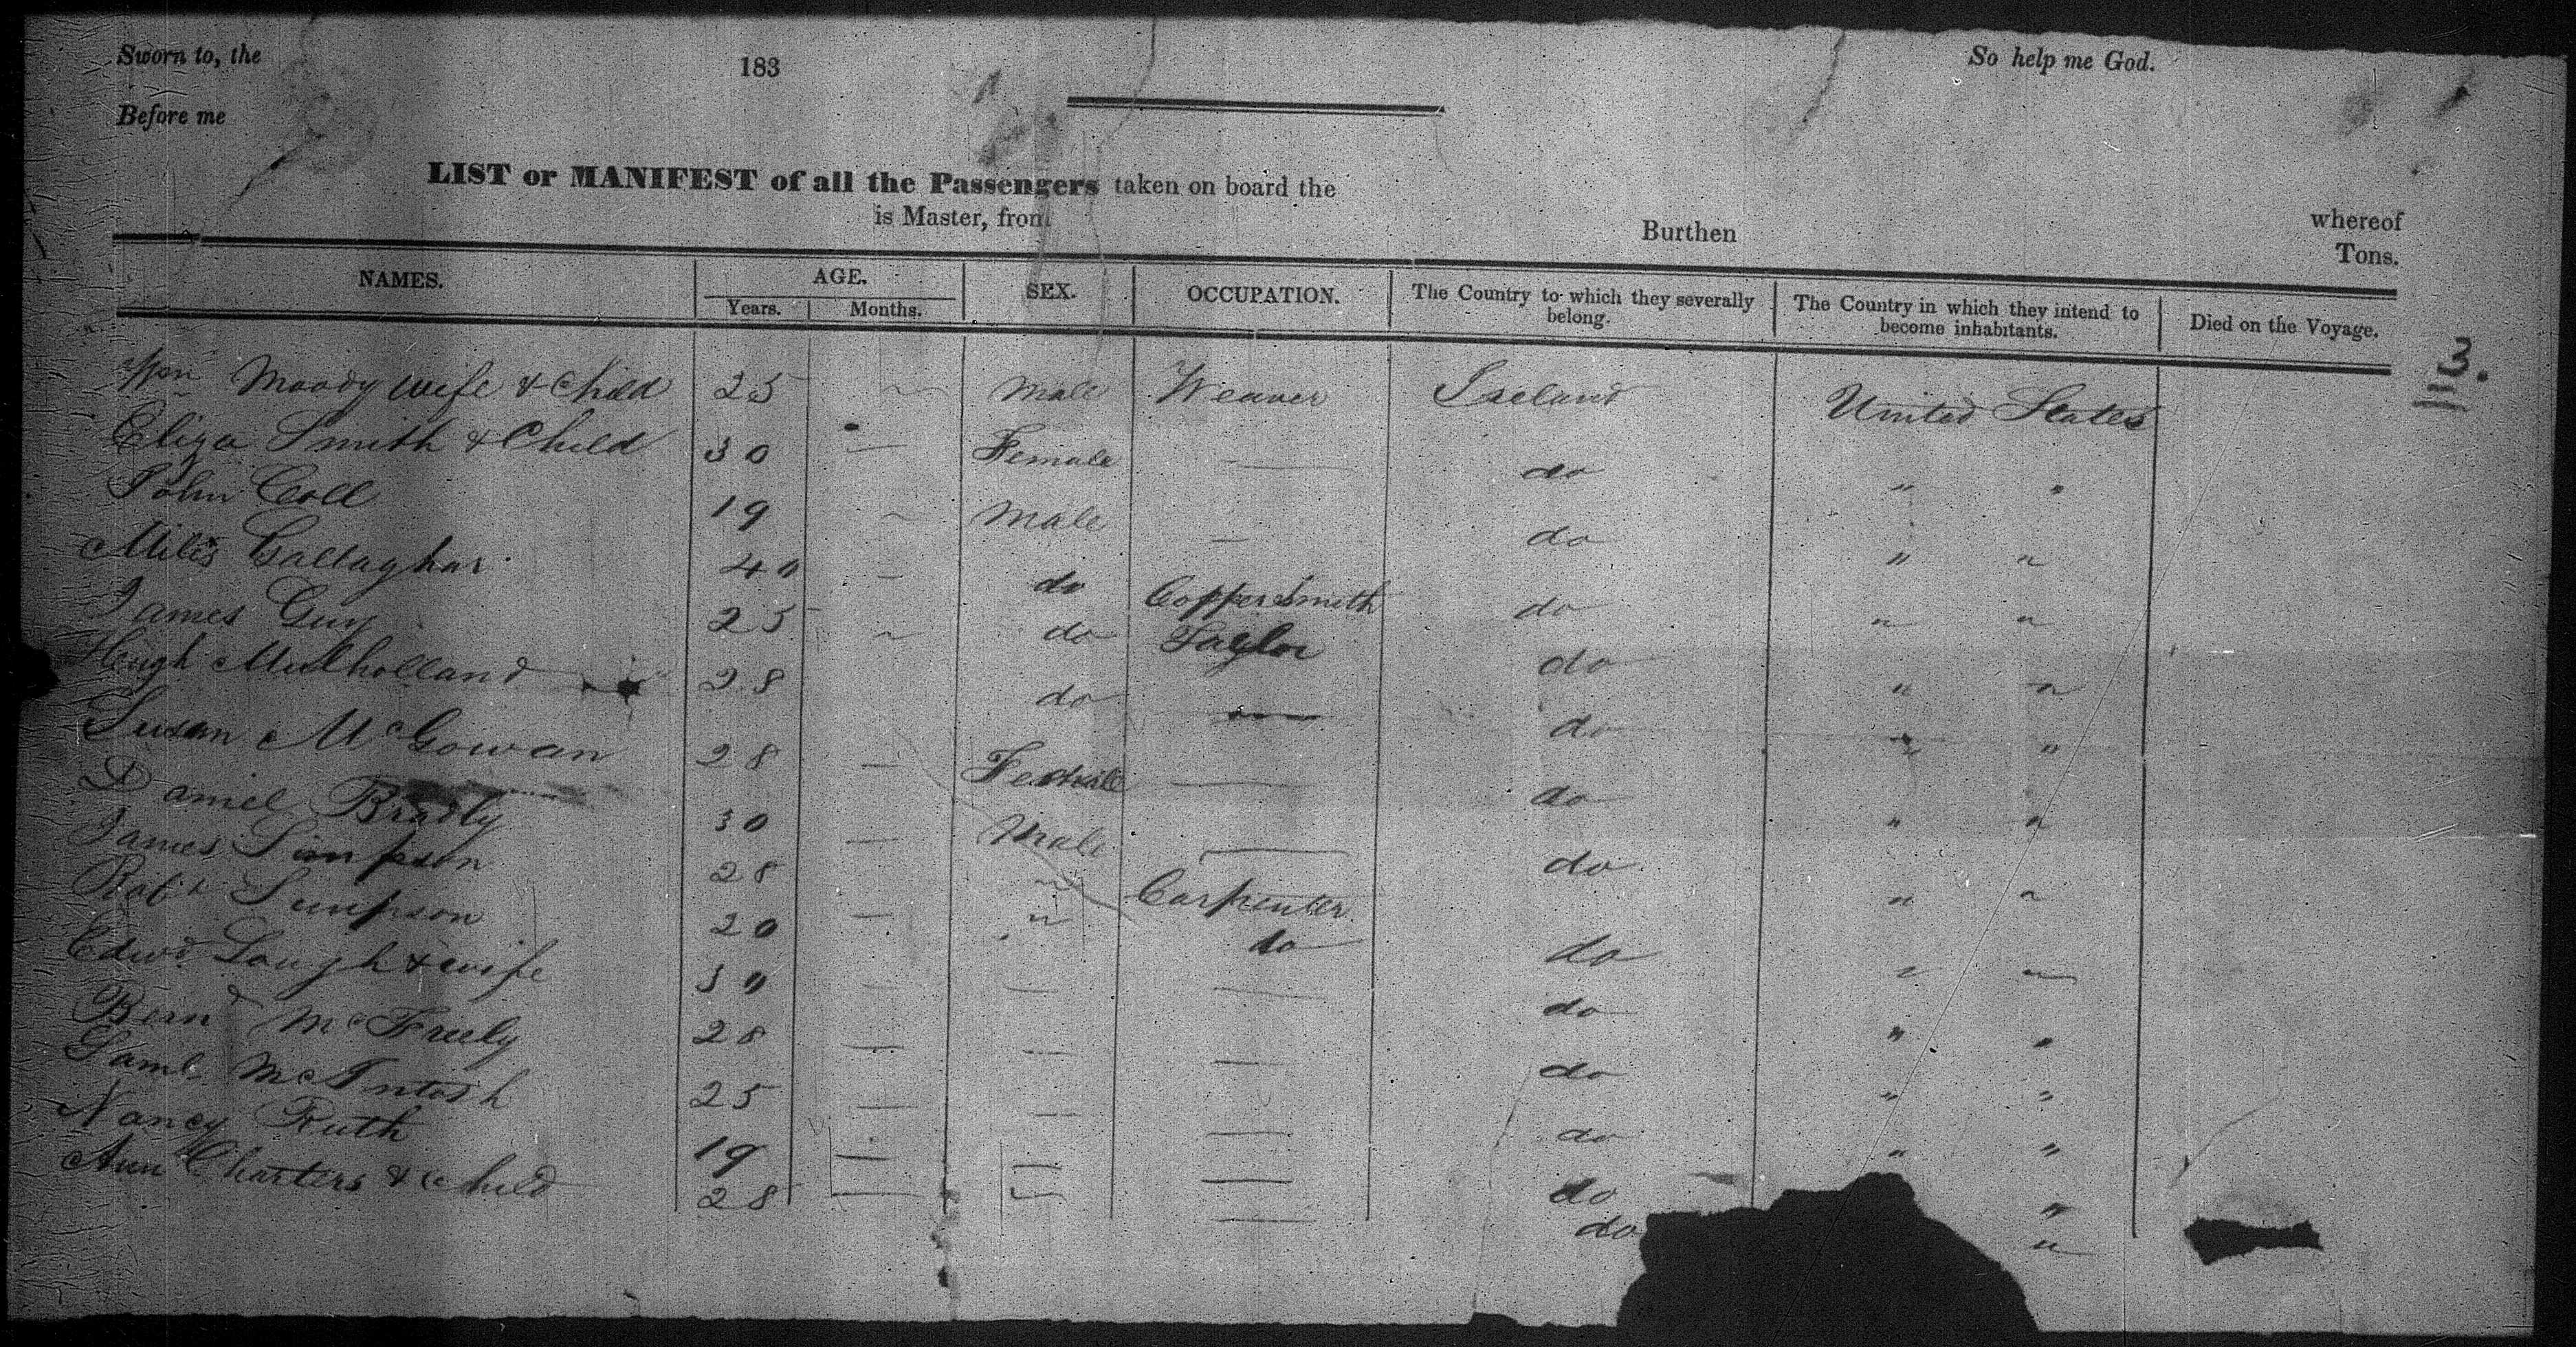 Sworn to, the 183 So help me God.
Before me
LIST or MANIFEST of all the Passengers taken on board the whereof
is Master, from Burthen Tons.
NAMES. AGE. SEX. OCCUPATION. The Country to which they severally belong. The Country in which they intend to become inhabitants. Died on the Voyage.
Years. Months.
3.
Wm Moody wife & Child 25 ~ Male Weaver Ireland United States
Eliza Smith & Child 30 — Female — do " "
John Coll 19 ~ Male — do " "
Miles Gallaghar 40 — do Copper Smith do " "
James Guy 25 ~ do Taylor do " "
Hugh Mulholland 28 do — do " "
Susan McGowan 28 — Female — do " "
Daniel Bradly 30 — Male — do " "
James Simpson 28 — " Carpenter do " "
Robt Simpson 20 — " do do " "
Edwd Lough & wife 30 — — — do " "
Bernd McFreely 28 — — — do " "
Saml McIntosh 25 — — — do " "
Nancy Ruth 19 — — — do "
Ann Charters & Child 28 — — — do "